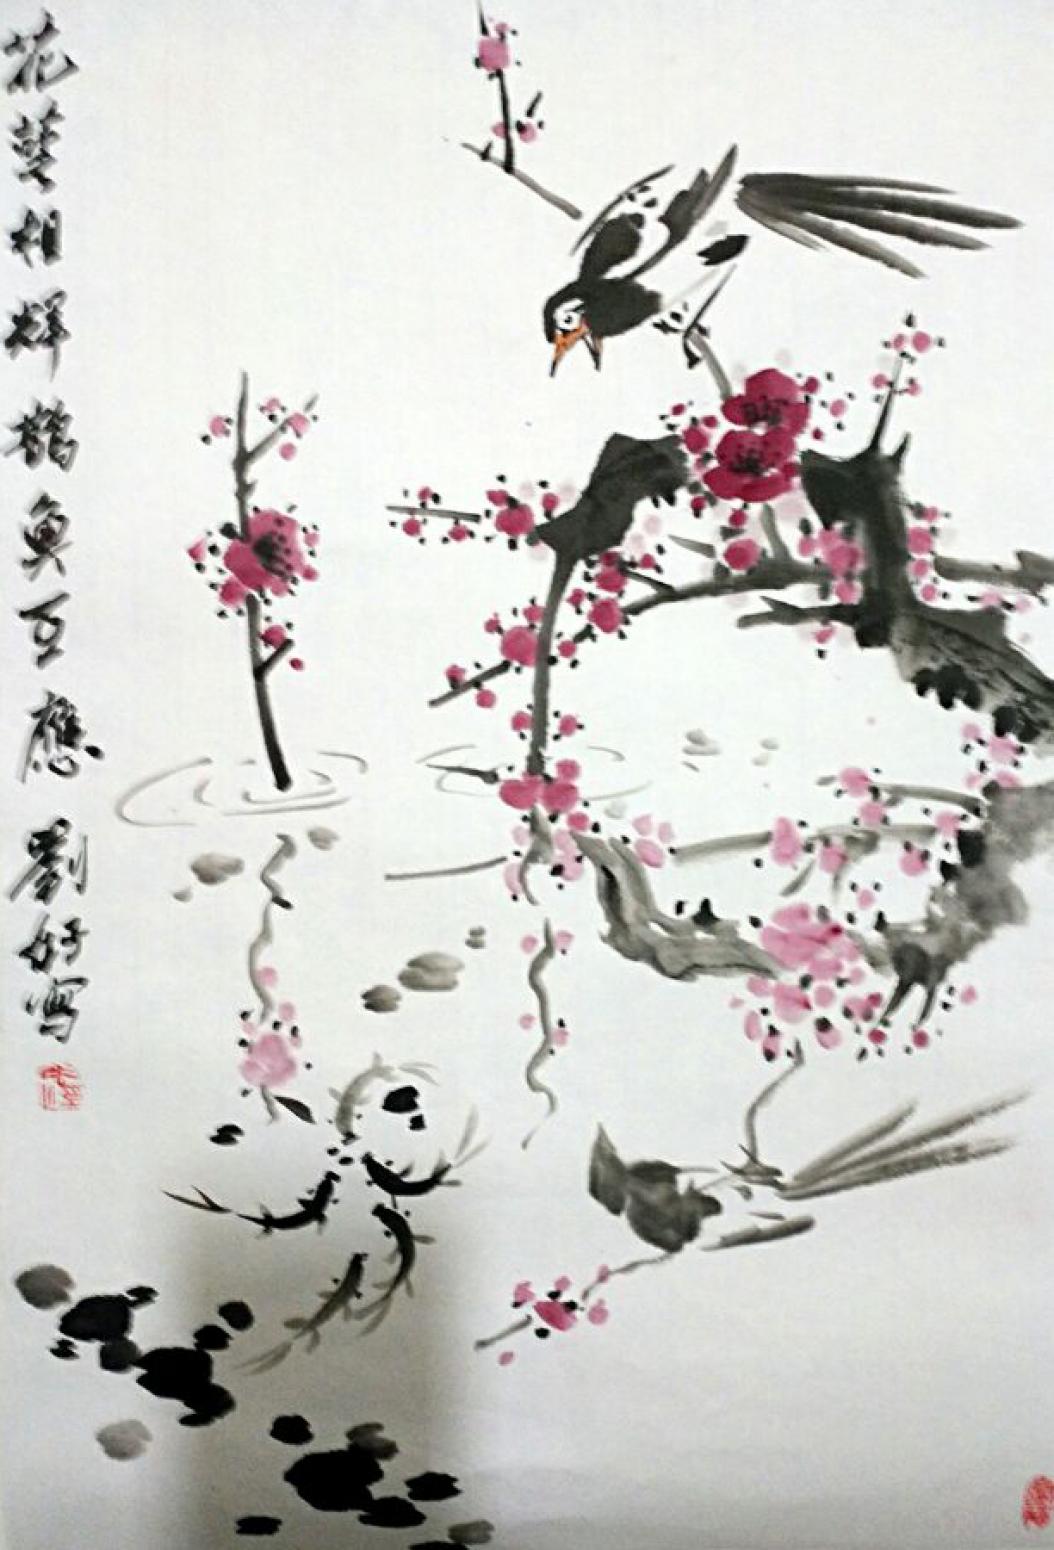 花雙相輝鵲魚互應 劉好寫